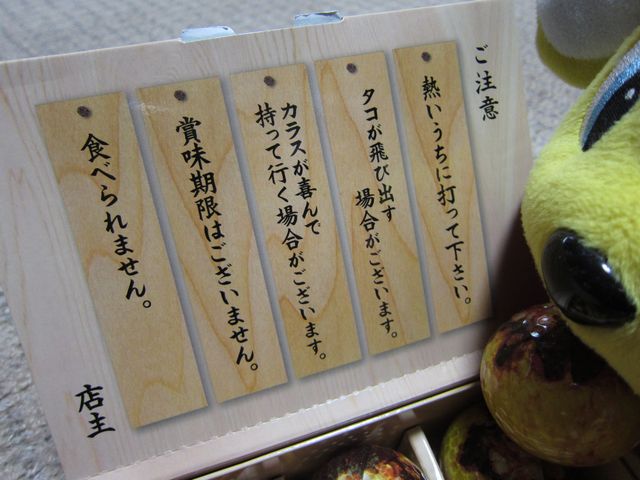 ご注意
熱いうちに打って下さい。
タコが飛び出す
場合がございます。
カラスが喜んで
持って行く場合がございます。
賞味期限はございません。
食べられません。
店主